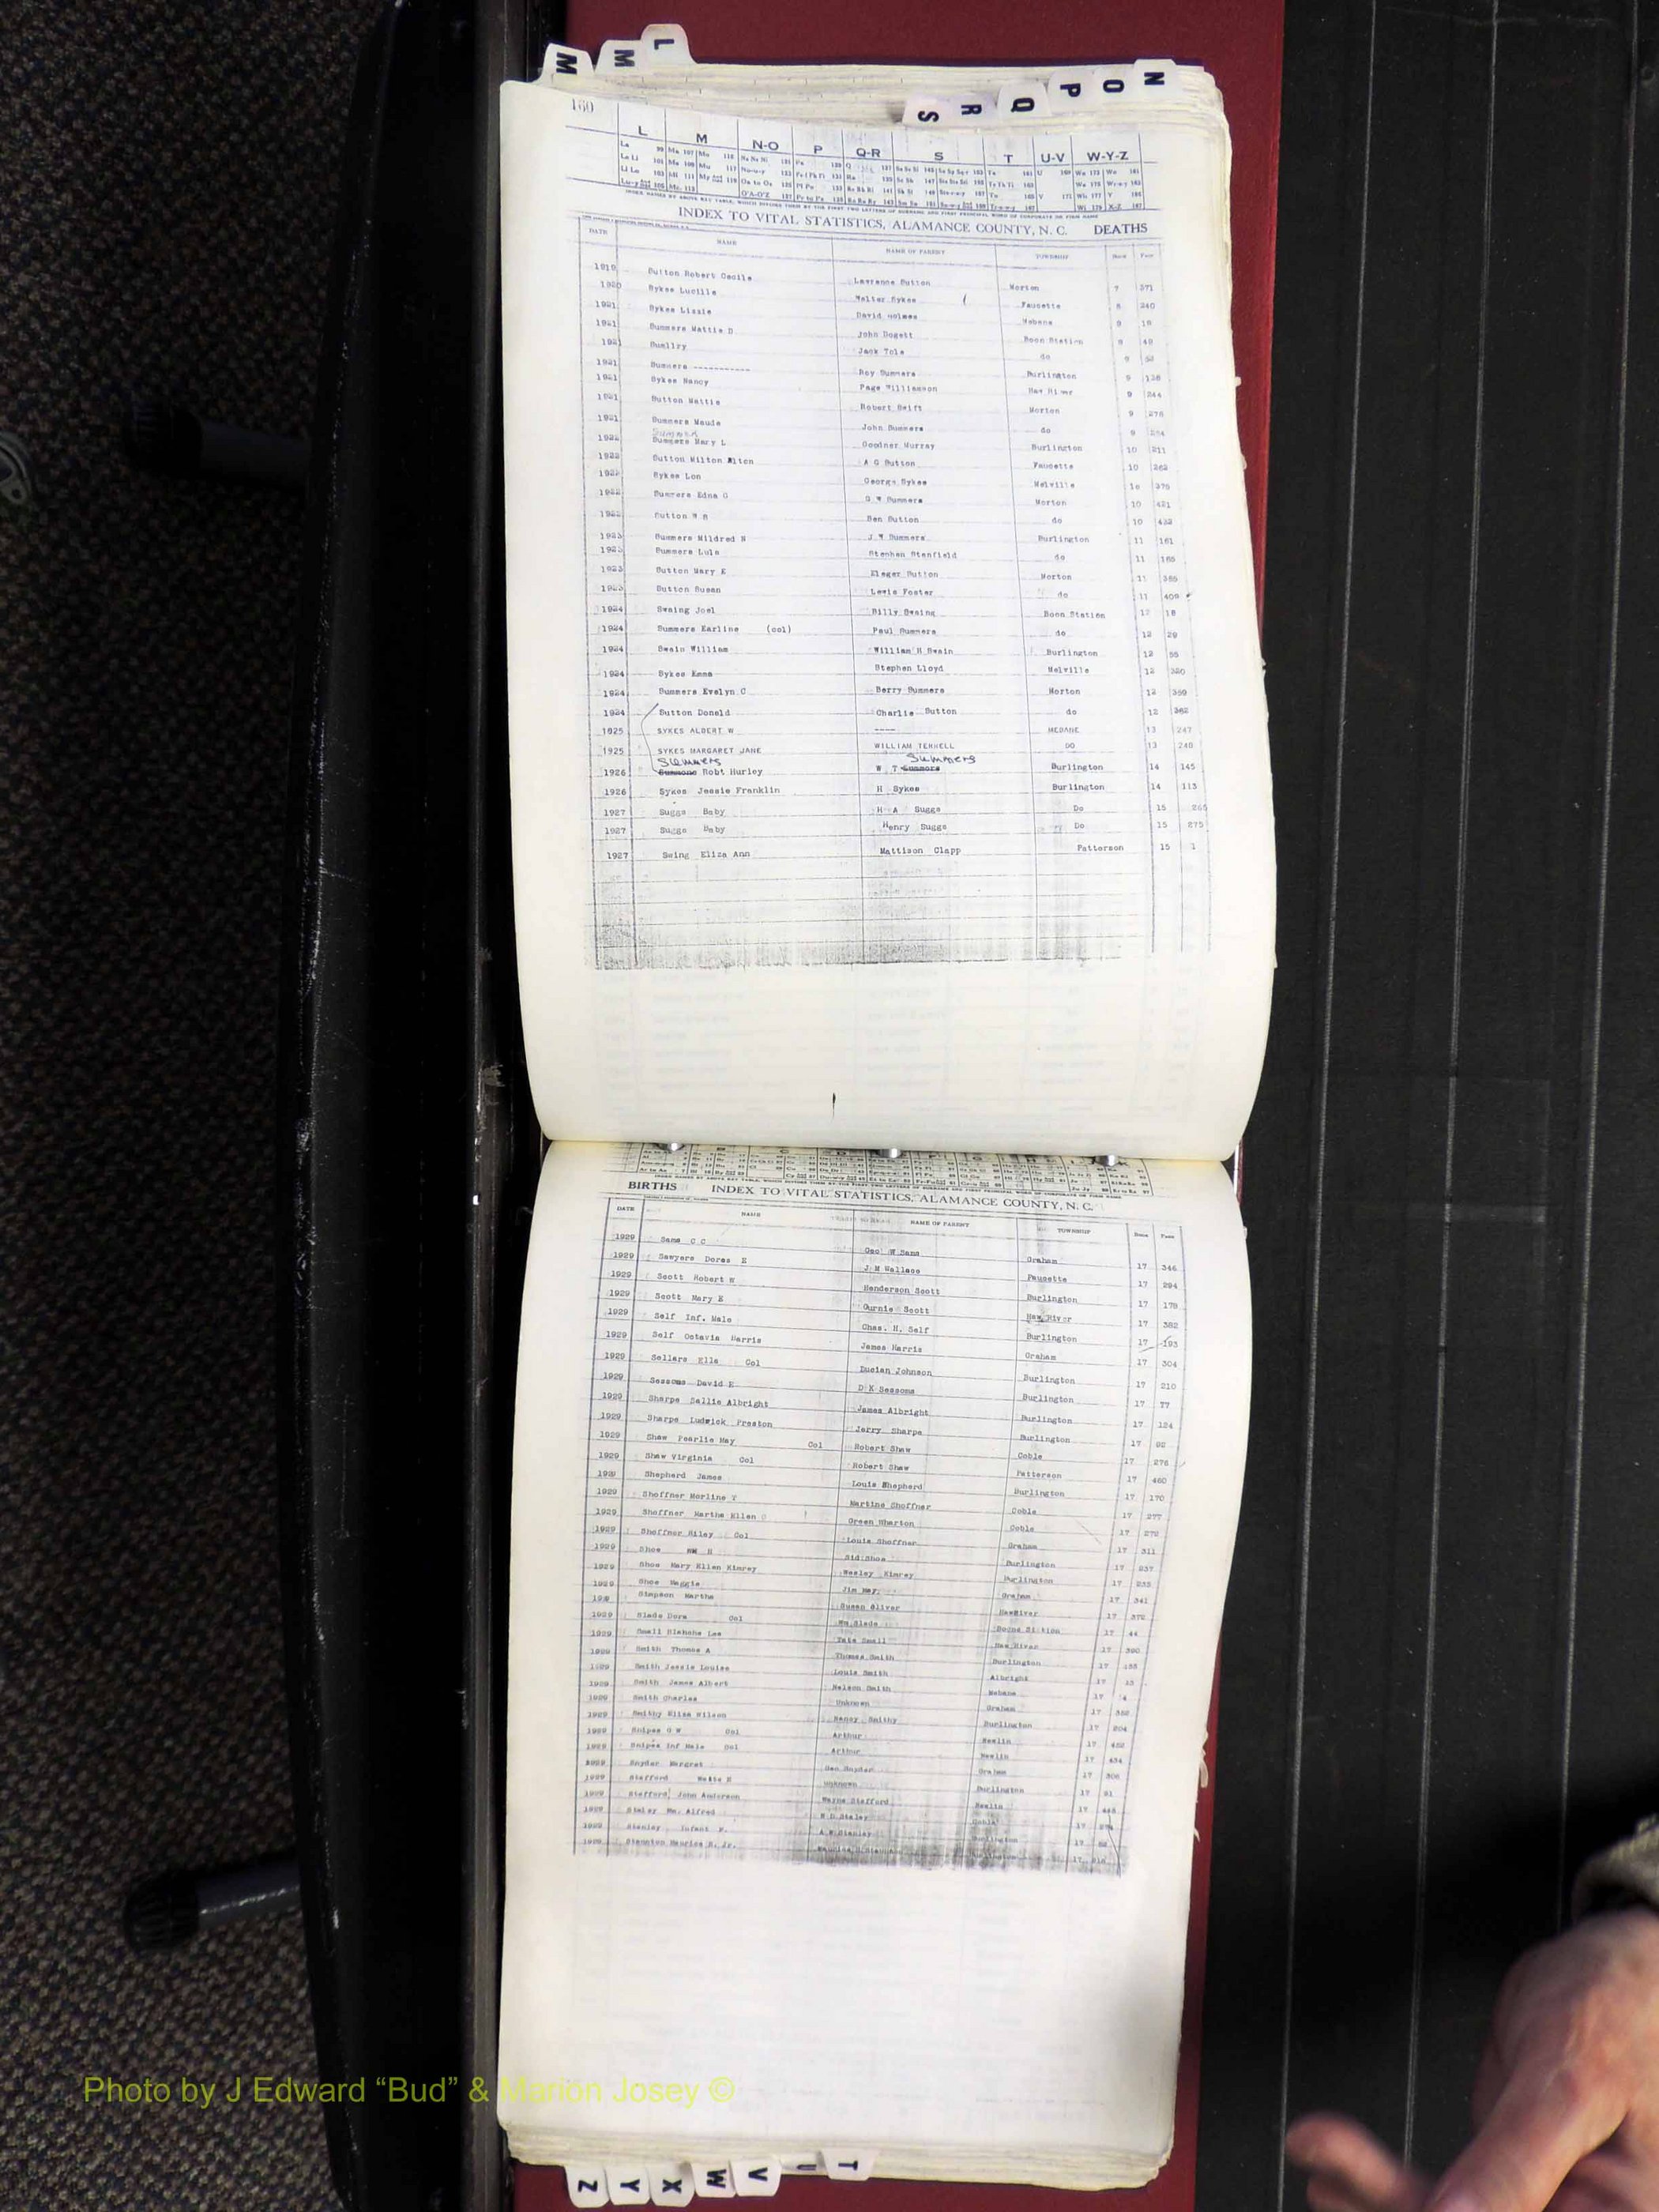 L
M
M
N
O
P
Q
R
S
160
L M N-O P Q-R S T U-V W-Y-Z
INDEX NAMES BY ABOVE KEY TABLE, WHICH DIVIDES THEM BY THE FIRST TWO LETTERS OF SURNAME AND FIRST PRINCIPAL WORD OF CORPORATE OR FIRM NAME
INDEX TO VITAL STATISTICS, ALAMANCE COUNTY, N. C. DEATHS
DATE NAME NAME OF PARENT TOWNSHIP Book Page
Sutton Robert Cecile Lawrence Sutton Morton 7 371
1920 Sykes Lucille Walter Sykes Faucette 8 240
1921 Sykes Lizzie David Holmes Mebane 9 18
1921 Summers Mattie D John Dogett Boon Station 9 49
1921 Jack Tole do 9
1921 Summers ----------- Roy Summers Burlington 9 136
1921 Sykes Nancy Page Williamson Haw River 9 244
1921 Sutton Mattie Robert Swift Morton 9 278
1921 Summers Maude John Summers do 9
Summers
1922 Summers Mary L Goodner Murray Burlington 10 211
1922 Sutton Milton Alton A G Sutton Faucette 10 262
1922 Sykes Lon George Sykes Melville 10 375
1922 Summers Edna G G W Summers Morton 10 421
1922 Sutton W R Ben Sutton do 10 432
1923 Summers Mildred N J W Summers Burlington 11 161
1923 Summers Lula Stephen Stanfield do 11 165
1923 Sutton Mary E Eleger Sutton Morton 11 385
1923 Sutton Susan Lewis Foster do 11 409
1924 Swaing Joel Billy Swaing Boon Station 12 18
1924 Summers Earline (col) Paul Summers do 12 29
1924 Swain William William H Swain Burlington 12 55
1924 Sykes Emma Stephen Lloyd Melville 12 320
1924 Summers Evelyn C Berry Summers Morton 12 359
1924 Sutton Donald Charlie Sutton do 12 362
1925 SYKES ALBERT W ---- MEBANE 13 247
1925 SYKES MARGARET JANE WILLIAM TERRELL DO 13 248
Summers Summers
1926 Summons Robt Hurley W T Summors Burlington 14 145
1926 Sykes Jessie Franklin H Sykes Burlington 14 113
1927 Suggs Baby H A Suggs Do 15 265
1927 Suggs Baby Henry Suggs Do 15 275
1927 Swing Eliza Ann Mattison Clapp Patterson 15 1
BIRTHS INDEX TO VITAL STATISTICS, ALAMANCE COUNTY, N. C.
DATE NAME NAME OF PARENT TOWNSHIP Book Page
1929 Sams C C Geo W Sams Graham 17 346
1929 Sawyers Doras E J M Wallace Faucette 17 294
1929 Scott Robert W Henderson Scott Burlington 17 179
1929 Scott Mary E Gurnie Scott Haw River 17 382
1929 Self Inf. Male Chas. H. Self Burlington 17 193
1929 Self Octavia Harris James Harris Graham 17 304
1929 Sellars Ella Col Lucian Johnson Burlington 17 210
1929 Sessoms David E D K Sessoms Burlington 17 77
1929 Sharpe Sallie Albright James Albright Burlington 17 124
1929 Sharpe Ludwick Preston Jerry Sharpe Burlington 17 92
1929 Shaw Pearlie May Col Robert Shaw Coble 17 276
1929 Shaw Virginia Col Robert Shaw Patterson 17 460
1929 Shepherd James Louis Shepherd Burlington 17 170
1929 Shoffner Morline T Martine Shoffner Coble 17 277
1929 Shoffner Martha Ellen Green Wharton Coble 17 272
1929 Shoffner Riley Col Louis Shoffner Graham 17 311
1929 Shoe H Sid Shoe Burlington 17 237
1929 Shoe Mary Ellen Kimrey Wesley Kimrey Burlington 17 233
1929 Shoe Maggie Jim May Graham 17 341
1929 Simpson Martha Susan Oliver HawRiver 17 372
1929 Slade Dora Col Wm Slade Boone Station 17 44
1929 Small Blanche Lee Tate Small Haw River 17 390
1929 Smith Thomas A Thomas Smith Burlington 17 155
1929 Smith Jessie Louise Louis Smith Albright 17 13
1929 Smith James Albert Nelson Smith Mebane 17 4
1929 Smith Charles Unknown Graham 17 352
1929 Smithy Eliza Wilson Nancy Smithy Burlington 17 204
1929 Snipes G W Col Arthur Newlin 17 452
1929 Snipes Inf Male Col Arthur Newlin 17 434
1929 Snyder Margret Geo Snyder Graham 17 306
1929 Stafford Unknown Burlington 17 91
1929 Stafford John Anderson Wayne Stafford Newlin 17
1929 Staley Wm. Alfred W D Staley Coble 17
1929 Stanley Infant F. A W Stanley Burlington 17
1929 Staunton Maurice R. Jr. 17
Photo by J Edward “Bud” & Marion Josey ©
Z
Y
X
W
V
U
T